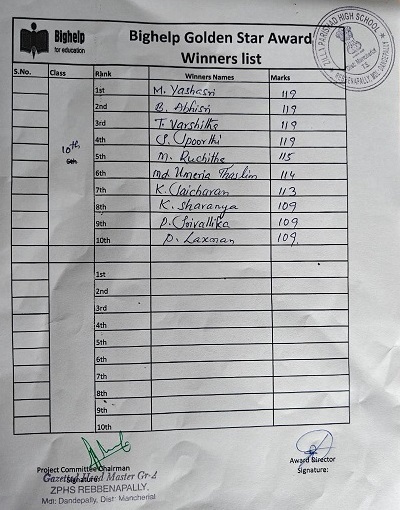 Bighelp
for education
Bighelp Golden Star Award
Winners list
ZILLA PARISHAD HIGH SCHOOL
REBBENAPALLY, MDL: DANDEPALLY
S.No. Class Rank Winners Names Marks
1st M. Yashasri 119
2nd B. Abhisri 119
3rd T. Varshitha 119
4th S. Spoorthi 119
10th 5th M. Ruchitha 115
6th Md Umeria Thaslim 114
7th K. Saicharan 113
8th K. Sharanya 109
9th P. Srivallika 109
10th P. Laxman 109
1st
2nd
3rd
4th
5th
6th
7th
8th
9th
10th
Project Committee Chairman
Signature:
Gazetted Head Master Gr-2
ZPHS REBBENAPALLY,
Mdl: Dandepally, Dist: Mancherial
Award Director
Signature: